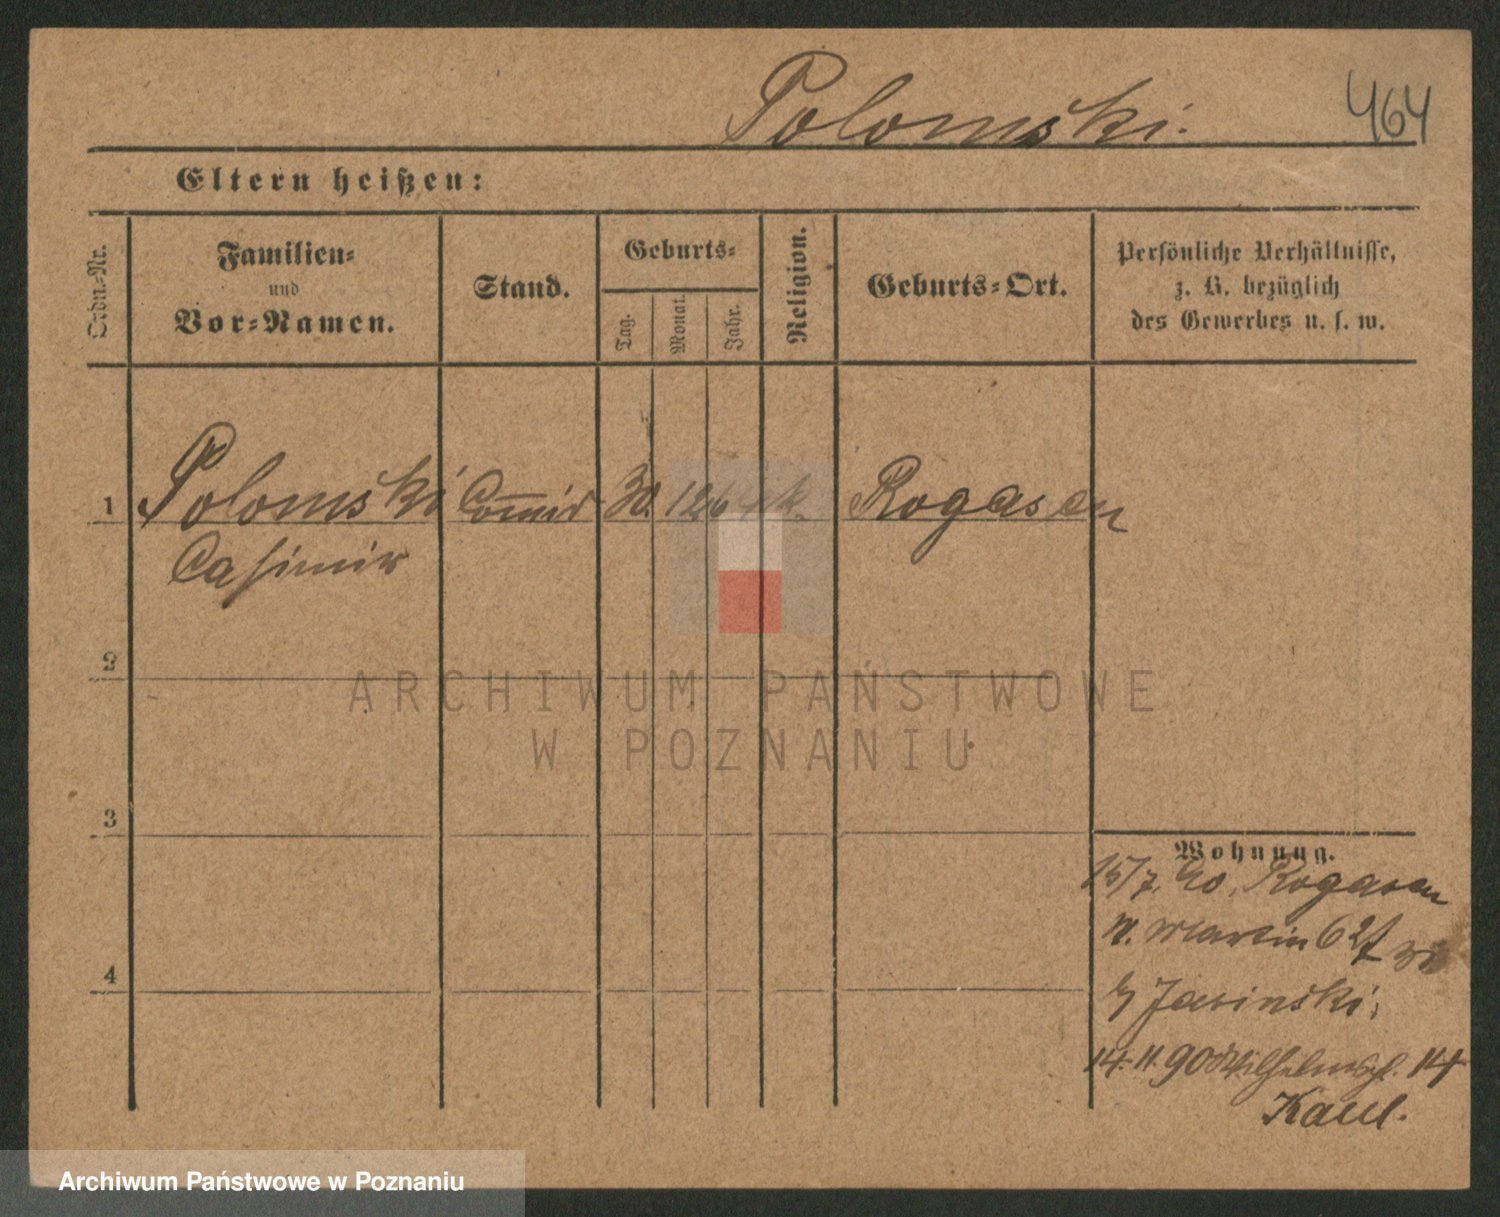 Polomski.
464
Eltern heißen:
Ordn.-Nr.
Familien-
und
Vor-Namen.
Stand.
Geburts-
Tag.
Monat.
Jahr.
Religion.
Geburts-Ort.
Persönliche Verhältnisse,
z. B. bezüglich
des Gewerbes u. s. w.
1 Polomski Commis 30. 12 k. Rogasen
Casimir
2
3
4
Wohnung.
15/7. 90. Rogasen
n. Martin 62
b/ Jasinski,
14. 11. 90 Wilhelmspl. 14
Kaul.
ARCHIWUM PAŃSTWOWE
W POZNANIU
Archiwum Państwowe w Poznaniu